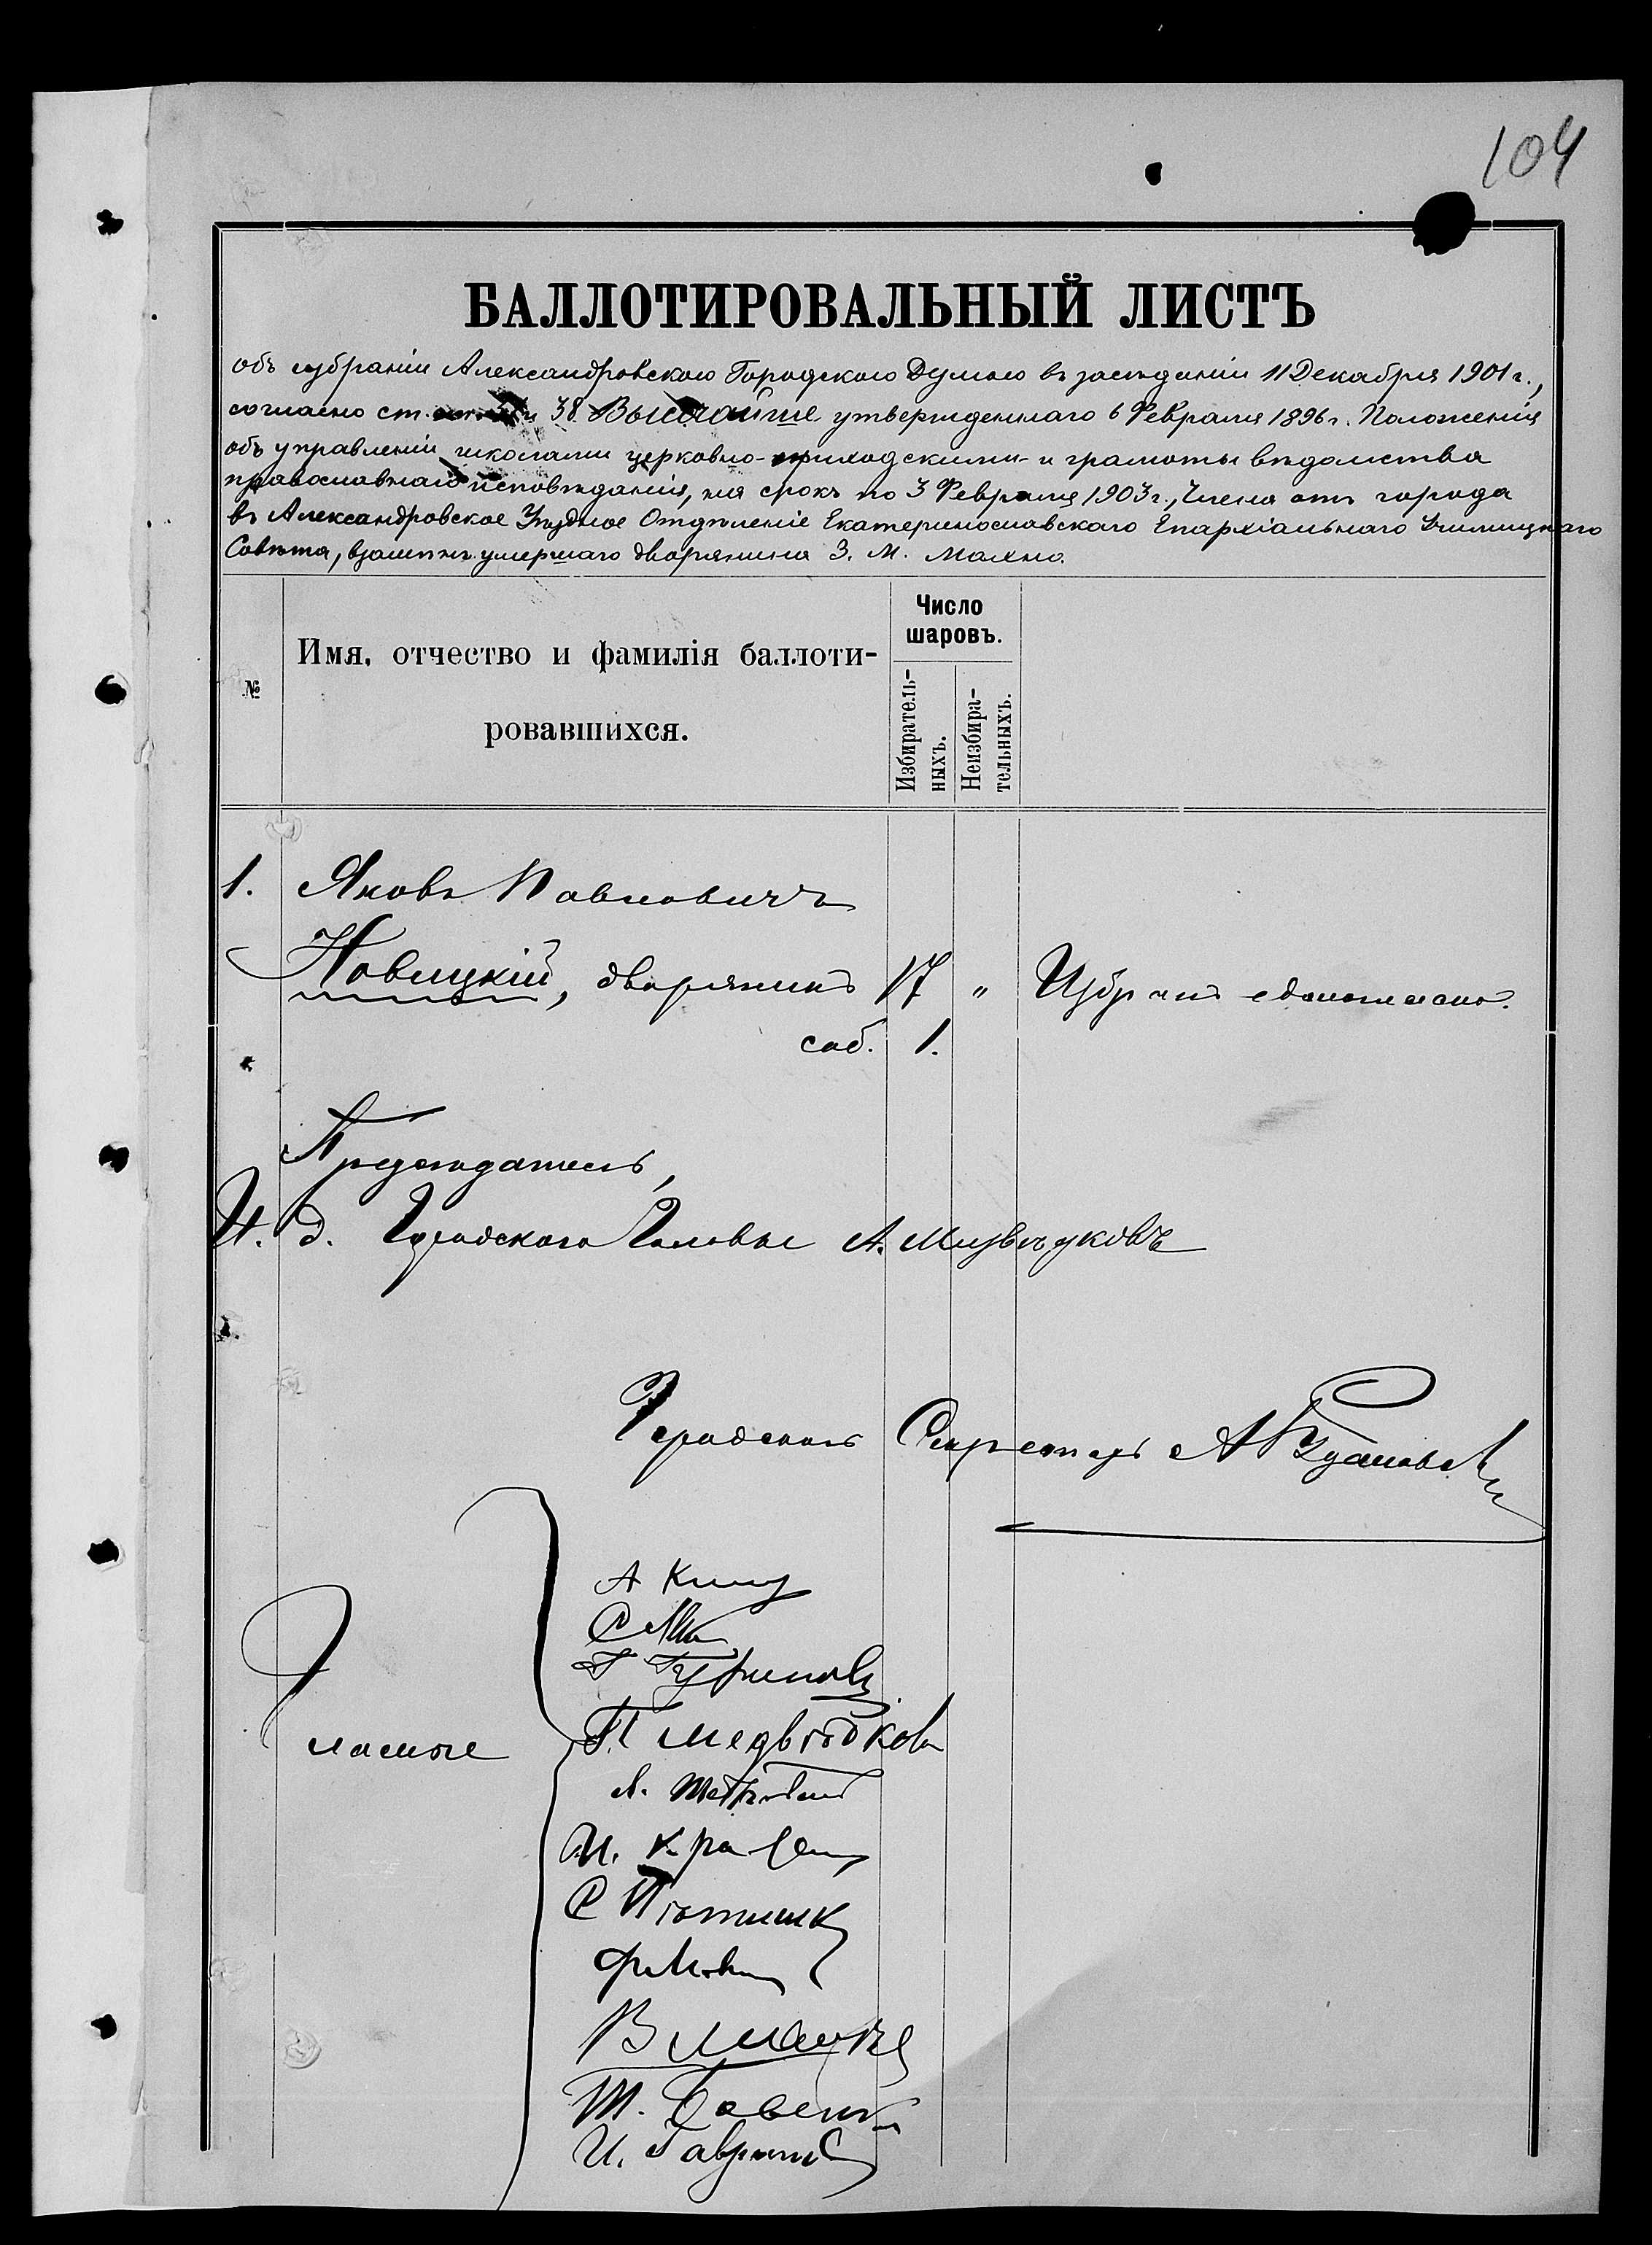 104
БАЛЛОТИРОВАЛЬНЫЙ ЛИСТЪ
объ избраніи Александровскою Городскою Думою въ засѣданіи 11 Декабря 1901 г.,
согласно ст. 38 Высочайше утвержденнаго 6 Февраля 1896 г. Положенія
объ управленіи школами церковно-приходскими и грамоты вѣдомства
православнаго исповѣданія, на срокъ по 3 Февраля 1903 г., Члена отъ города
въ Александровское Уѣздное Отдѣленіе Екатеринославскаго Епархіальнаго Училищнаго
Совѣта, взамѣнъ умершаго дворянина З. М. Махно.
№
Имя, отчество и фамилія баллоти-
ровавшихся.
Число
шаровъ.
Избиратель-
ныхъ.
Неизбира-
тельныхъ.
1. Яковъ Павловичъ
Новицкій, дворянинъ 17 " Избранъ единогласно.
соб. 1.
Предсѣдатель,
И. д. Городского Головы А. Медвѣдковъ
Городской Секретарь А
Гласные
А
С
Г
П Медвѣдковъ
И.
С
В
Т.
И.